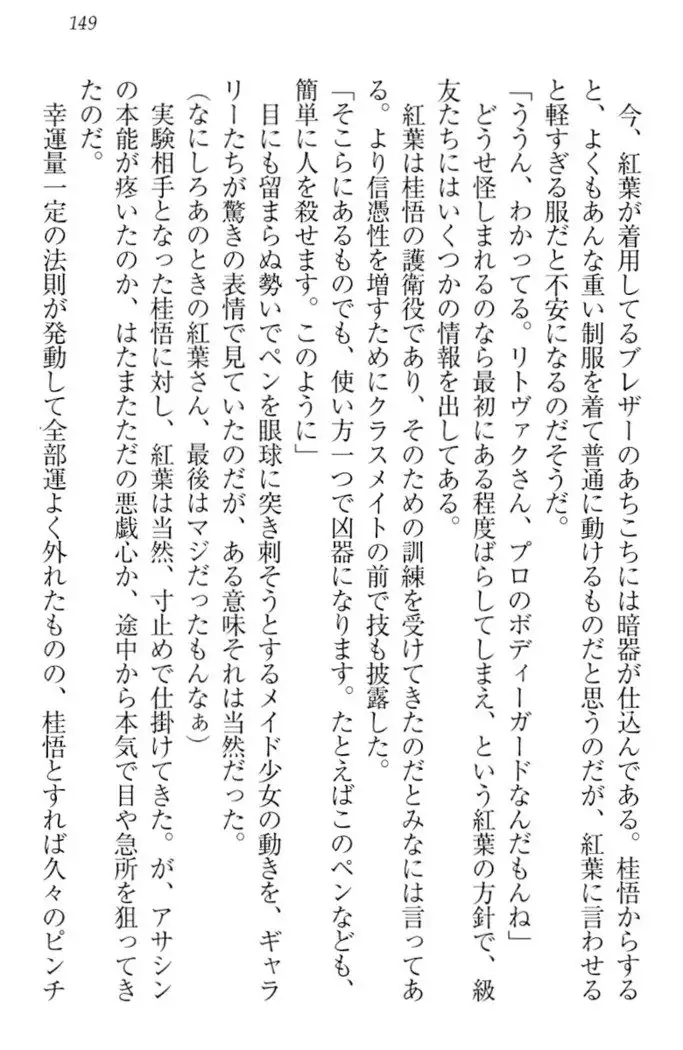 149
今、紅葉が着用してるブレザーのあちこちには暗器が仕込んである。桂悟からする
と、よくもあんな重い制服を着て普通に動けるものだと思うのだが、紅葉に言わせる
と軽すぎる服だと不安になるのだそうだ。
「ううん、わかってる。リトヴァクさん、プロのボディーガードなんだもんね」
どうせ怪しまれるのなら最初にある程度ばらしてしまえ、という紅葉の方針で、級
友たちにはいくつかの情報を出してある。
紅葉は桂悟の護衛役であり、そのための訓練を受けてきたのだとみなには言ってあ
る。より信憑性を増すためにクラスメイトの前で技も披露した。
「そこらにあるものでも、使い方一つで凶器になります。たとえばこのペンなども、
簡単に人を殺せます。このように」
目にも留まらぬ勢いでペンを眼球に突き刺そうとするメイド少女の動きを、ギャラ
リーたちが驚きの表情で見ていたのだが、ある意味それは当然だった。
（なにしろあのときの紅葉さん、最後はマジだったもんなぁ）
実験相手となった桂悟に対し、紅葉は当然、寸止めで仕掛けてきた。が、アサシン
の本能が疼いたのか、はたまたただの悪戯心か、途中から本気で目や急所を狙ってき
たのだ。
幸運量一定の法則が発動して全部運よく外れたものの、桂悟とすれば久々のピンチ